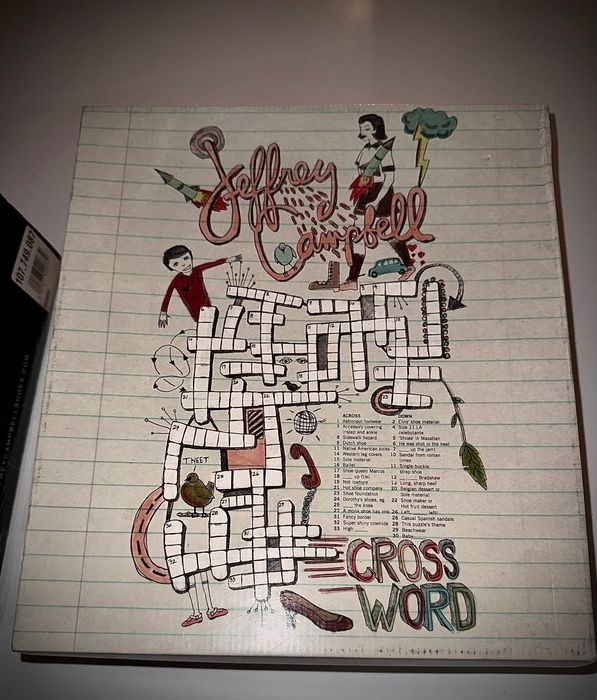 Jeffrey
Campbell
107.749.087
TWEET
ACROSS
1 Astronaut footwear
3 Accessory covering
instep and ankle
4 Sidewalk hazard
9 Dutch shoe
11 Native American kicks
14 Western leg covers
15 Sole material
16 Ballet
17 Shoe queen Marcos
18 ___ up (tie)
19 Not lowtyre
21 Hot shoe company
23 Shoe foundation
24 Dorothy's shoes, eg
25 ___ the knee
27 A monk shoe has one
31 Fancy border
32 Super shiny cowhide
33 High
DOWN
2 Elvis' shoe material
4 Size 11 LA
celebutante
5 'Shoes' in Mazatlan
6 He was shot in the heel
7 ___ up the jam!
10 Sandal from roman
times
11 Single-buckle
strap shoe
12 ___ Bradshaw
13 Long, sharp heel
20 Belgian dessert or
Sole material
22 Shoe maker or
Hot fruit dessert
24 Left, ___, left!
26 Casual Spanish sandals
28 This puzzle's theme
29 Beachwear
30 Baby
CROSS
WORD